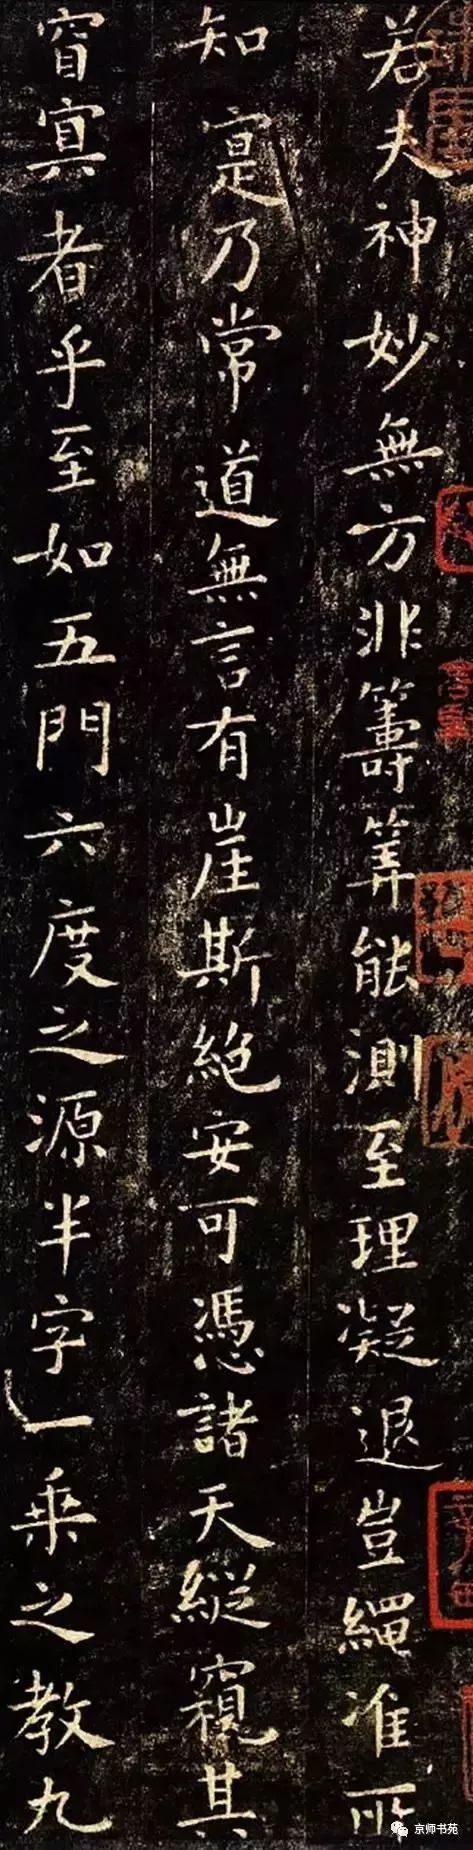 若夫神妙無方非籌筭能測至理凝退豈繩准所
知寔乃常道無言有崖斯絶安可憑諸天縱窺其
窅㝠者乎至如五門六度之源半字一乘之教九
京师书苑